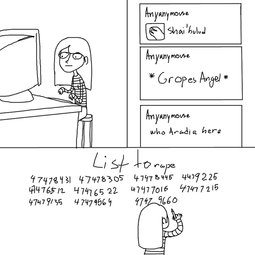 Anyanymouse
Shai'hulud
Anyanymouse
*Gropes Angel*
Anyanymouse
who Aradia here
List to rape
47478431 47478305 47478445 4479225
4476512 47476522 47477016 47477215
47479135 47479564 47479660